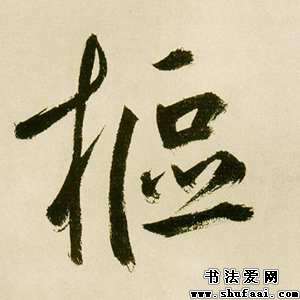 樞
书法爱网
www.shufaai.com